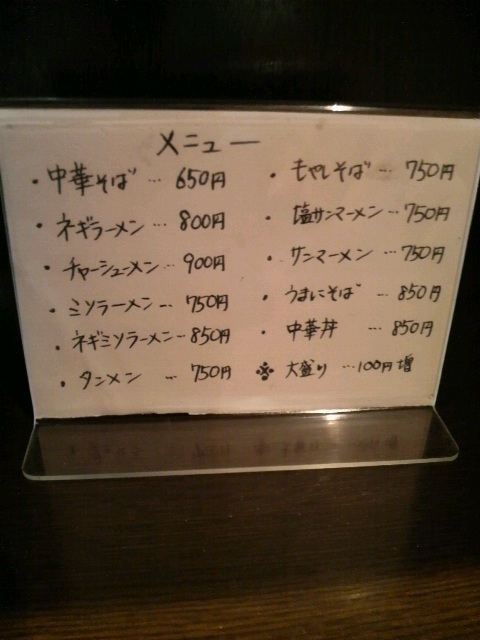 メニュー
・中華そば … 650円
・ネギラーメン … 800円
・チャーシューメン … 900円
・ミソラーメン … 750円
・ネギミソラーメン … 850円
・タンメン … 750円
・もやしそば … 750円
・塩サンマーメン … 750円
・サンマーメン … 750円
・うまにそば … 850円
・中華丼 … 850円
※大盛り … 100円増